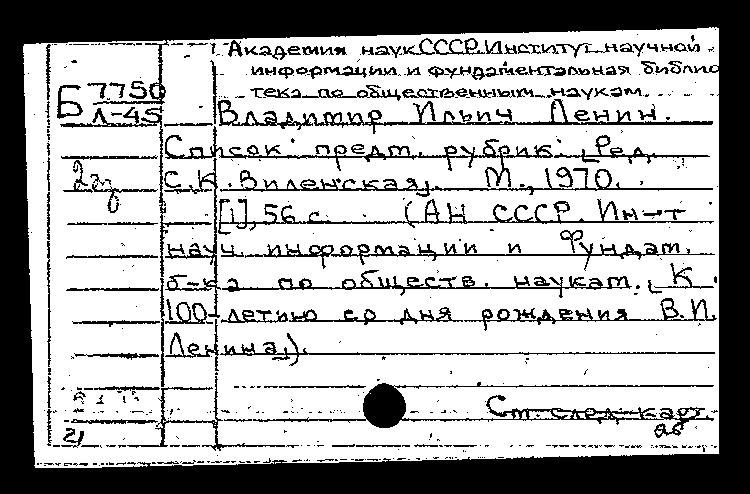 Академия наук СССР. Институт научной
информации и фундаментальная библио
тека по общественным наукам.
Б 7750
Л-45
Владимир Ильич Ленин.
Список предм. рубрик. [Ред.
2аз
С.К. Виленская]. М., 1970.
[1], 56 с. (АН СССР. Ин-т
науч. информации и Фундам.
б-ка по обществ. наукам. [К
100-летию со дня рождения В.И.
Ленина]).
См. след. кар.
21